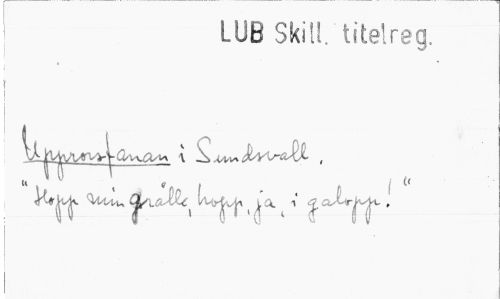 LUB Skill. titelreg.
Upprorsfanan i Sundsvall.
"Hopp min grålle, hopp, ja, i galopp!"